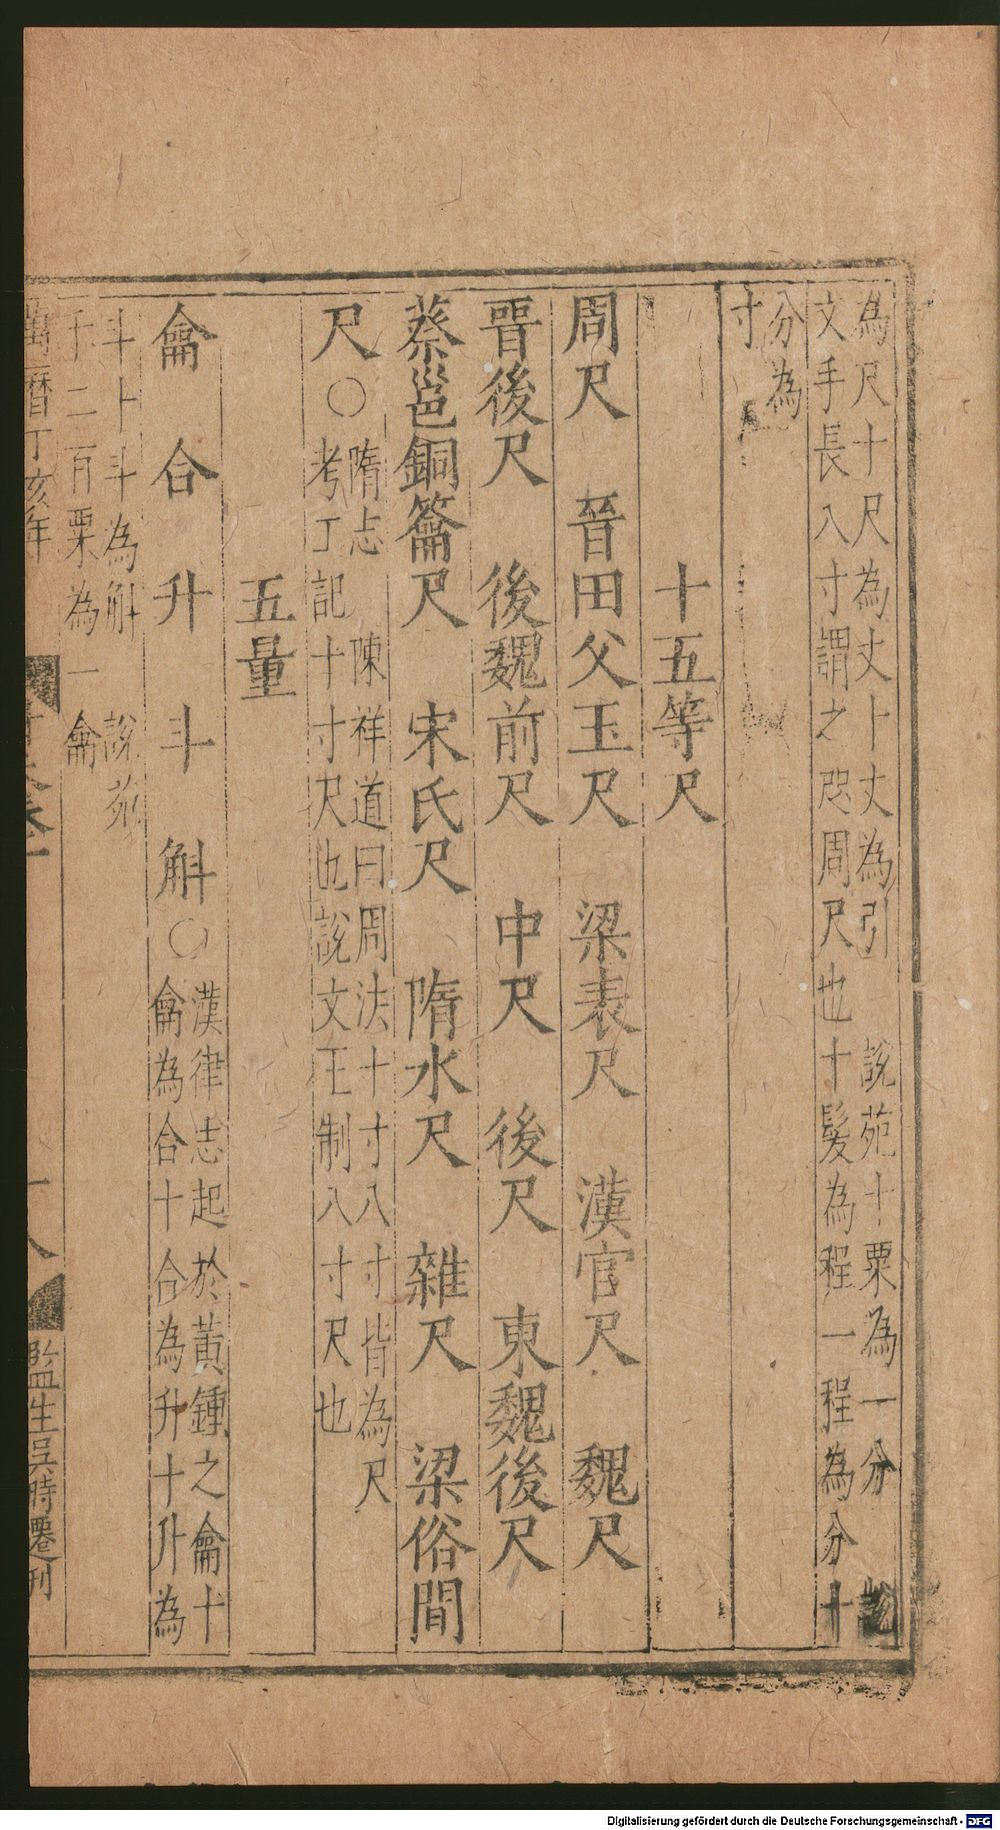 為尺十尺為丈十丈為引 說苑十粟為一分 說
文手長八寸謂之咫周尺也十髮為程一程為分十
分為
寸
十五等尺
周尺 晉田父玉尺 梁表尺 漢官尺 魏尺
晉後尺 後魏前尺 中尺 後尺 東魏後尺
蔡邕銅籥尺 宋氏尺 隋水尺 雜尺 梁俗間
尺○隋志 陳祥道曰周法十寸八寸皆為尺
考工記十寸尺也說文王制八寸尺也
五量
龠 合 升 斗 斛○漢律志起於黃鍾之龠十
龠為合十合為升十升為
斗十斗為斛 說苑
千二百粟為一龠
萬曆丁亥年
十八
監生吳時遷刊
Digitalisierung gefördert durch die Deutsche Forschungsgemeinschaft - DFG